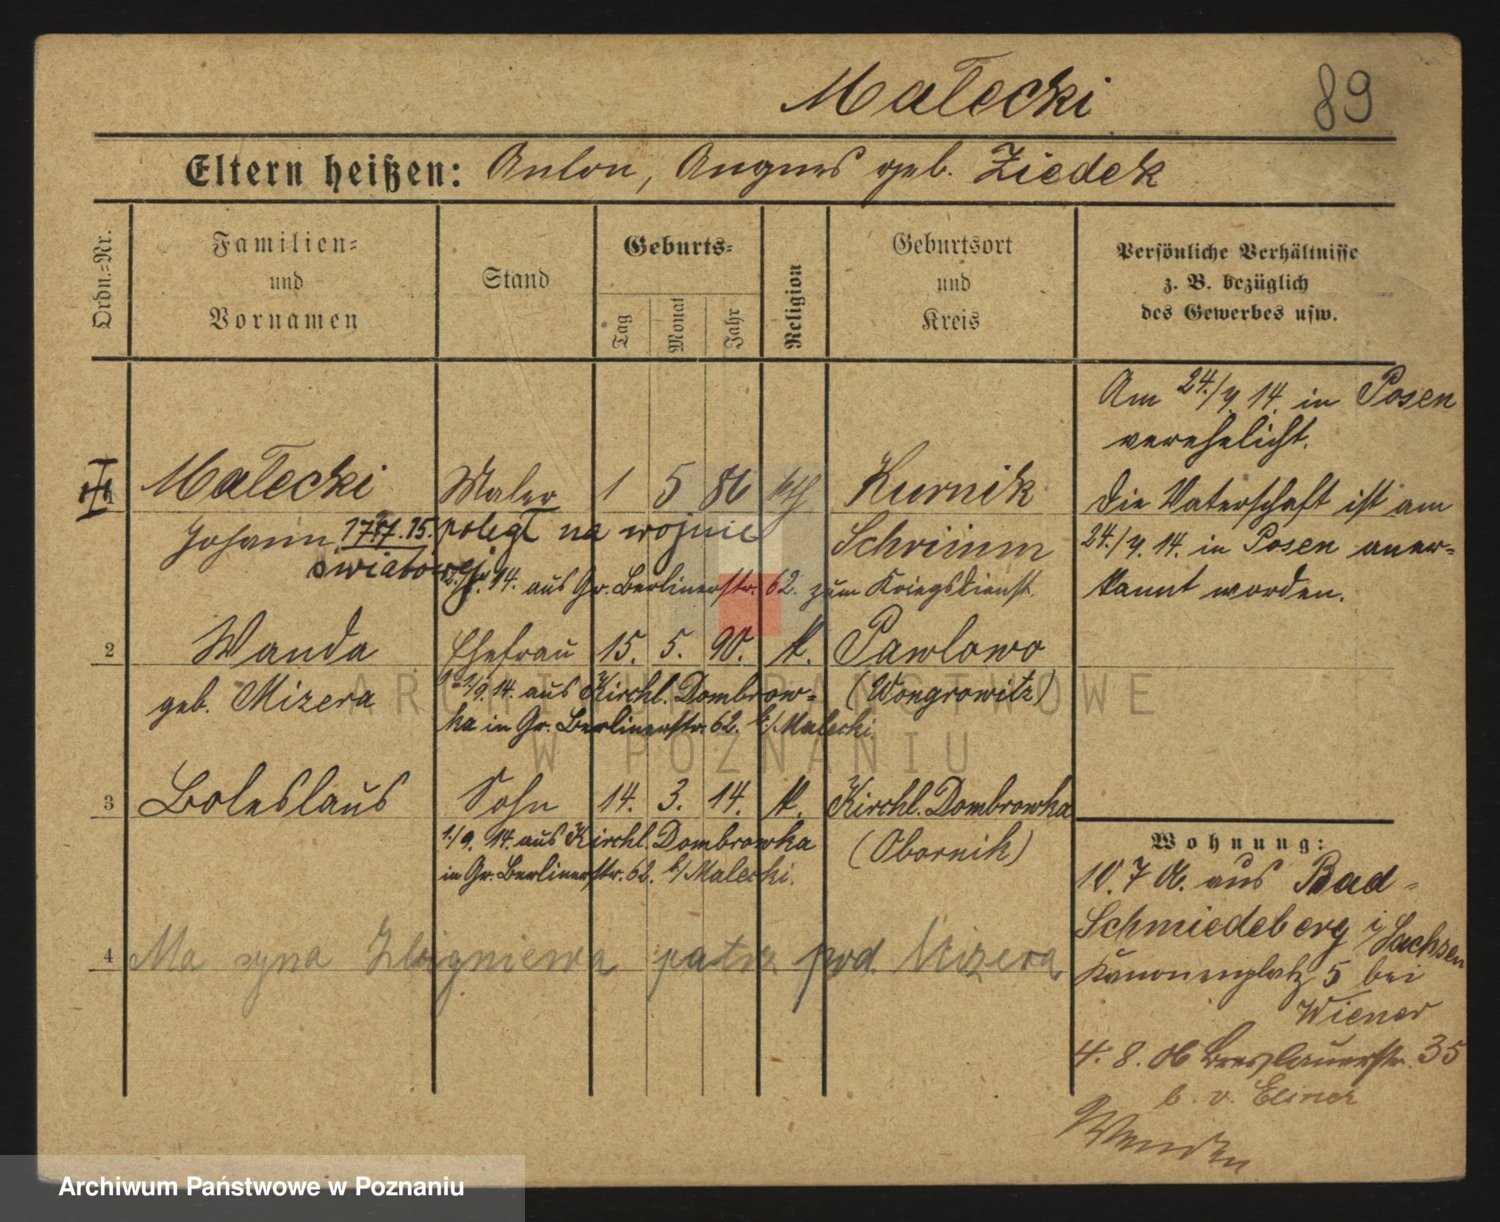 Małecki 89
Eltern heißen: Anton, Angnes geb. Ziedek
Ordn.=Nr.
Familien=
und
Vornamen
Stand
Geburts=
Tag
Monat
Jahr
Religion
Geburtsort
und
Kreis
Persönliche Verhältnisse
z. B. bezüglich
des Gewerbes usw.
1 Małecki Maler 1 5 86 kth Kurnik
Johann 15. poległ na wojnie Schrimm
światowej
14. aus Gr. Berlinerstr. 62. zum Kriegsdienst.
2 Wanda Ehefrau 15. 5. 90. k. Pawlowo
geb. Mizera 9. 14. aus Kirchl. Dombrow= (Wongrowitz)
ka in Gr. Berlinerstr. 62. b/Malecki.
3 Boleslaus Sohn 14. 3. 14. k. Kirchl. Dombrowka
1./9. 14. aus Kirchl. Dombrowka (Obornik)
in Gr. Berlinerstr. 62. b/Malecki.
4 Ma syna Zbigniewa patrz pod Mizera
Am 24./9. 14. in Posen
verehelicht.
Die Vaterschaft ist am
24./9. 14. in Posen aner=
kannt worden.
Wohnung:
10. 7 06. aus Bad=
Schmiedeberg i/Sachsen
Kanonenplatz 5 bei
Wiener
4. 8. 06 Breslauerstr. 35
b. v.
Wenden
ARCHIWUM PAŃSTWOWE
W POZNANIU
Archiwum Państwowe w Poznaniu